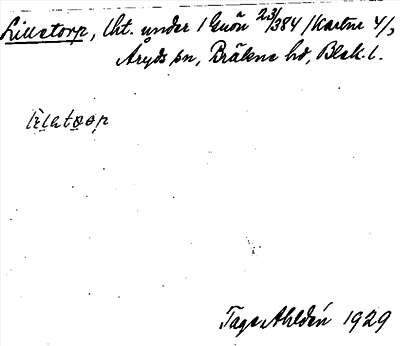 Lillatorp, lht. under 1 Guön 23/384 /Kartnr 4/,
Åryds sn, Bräkne hd, Blek. l.
Tage Ahldén 1929